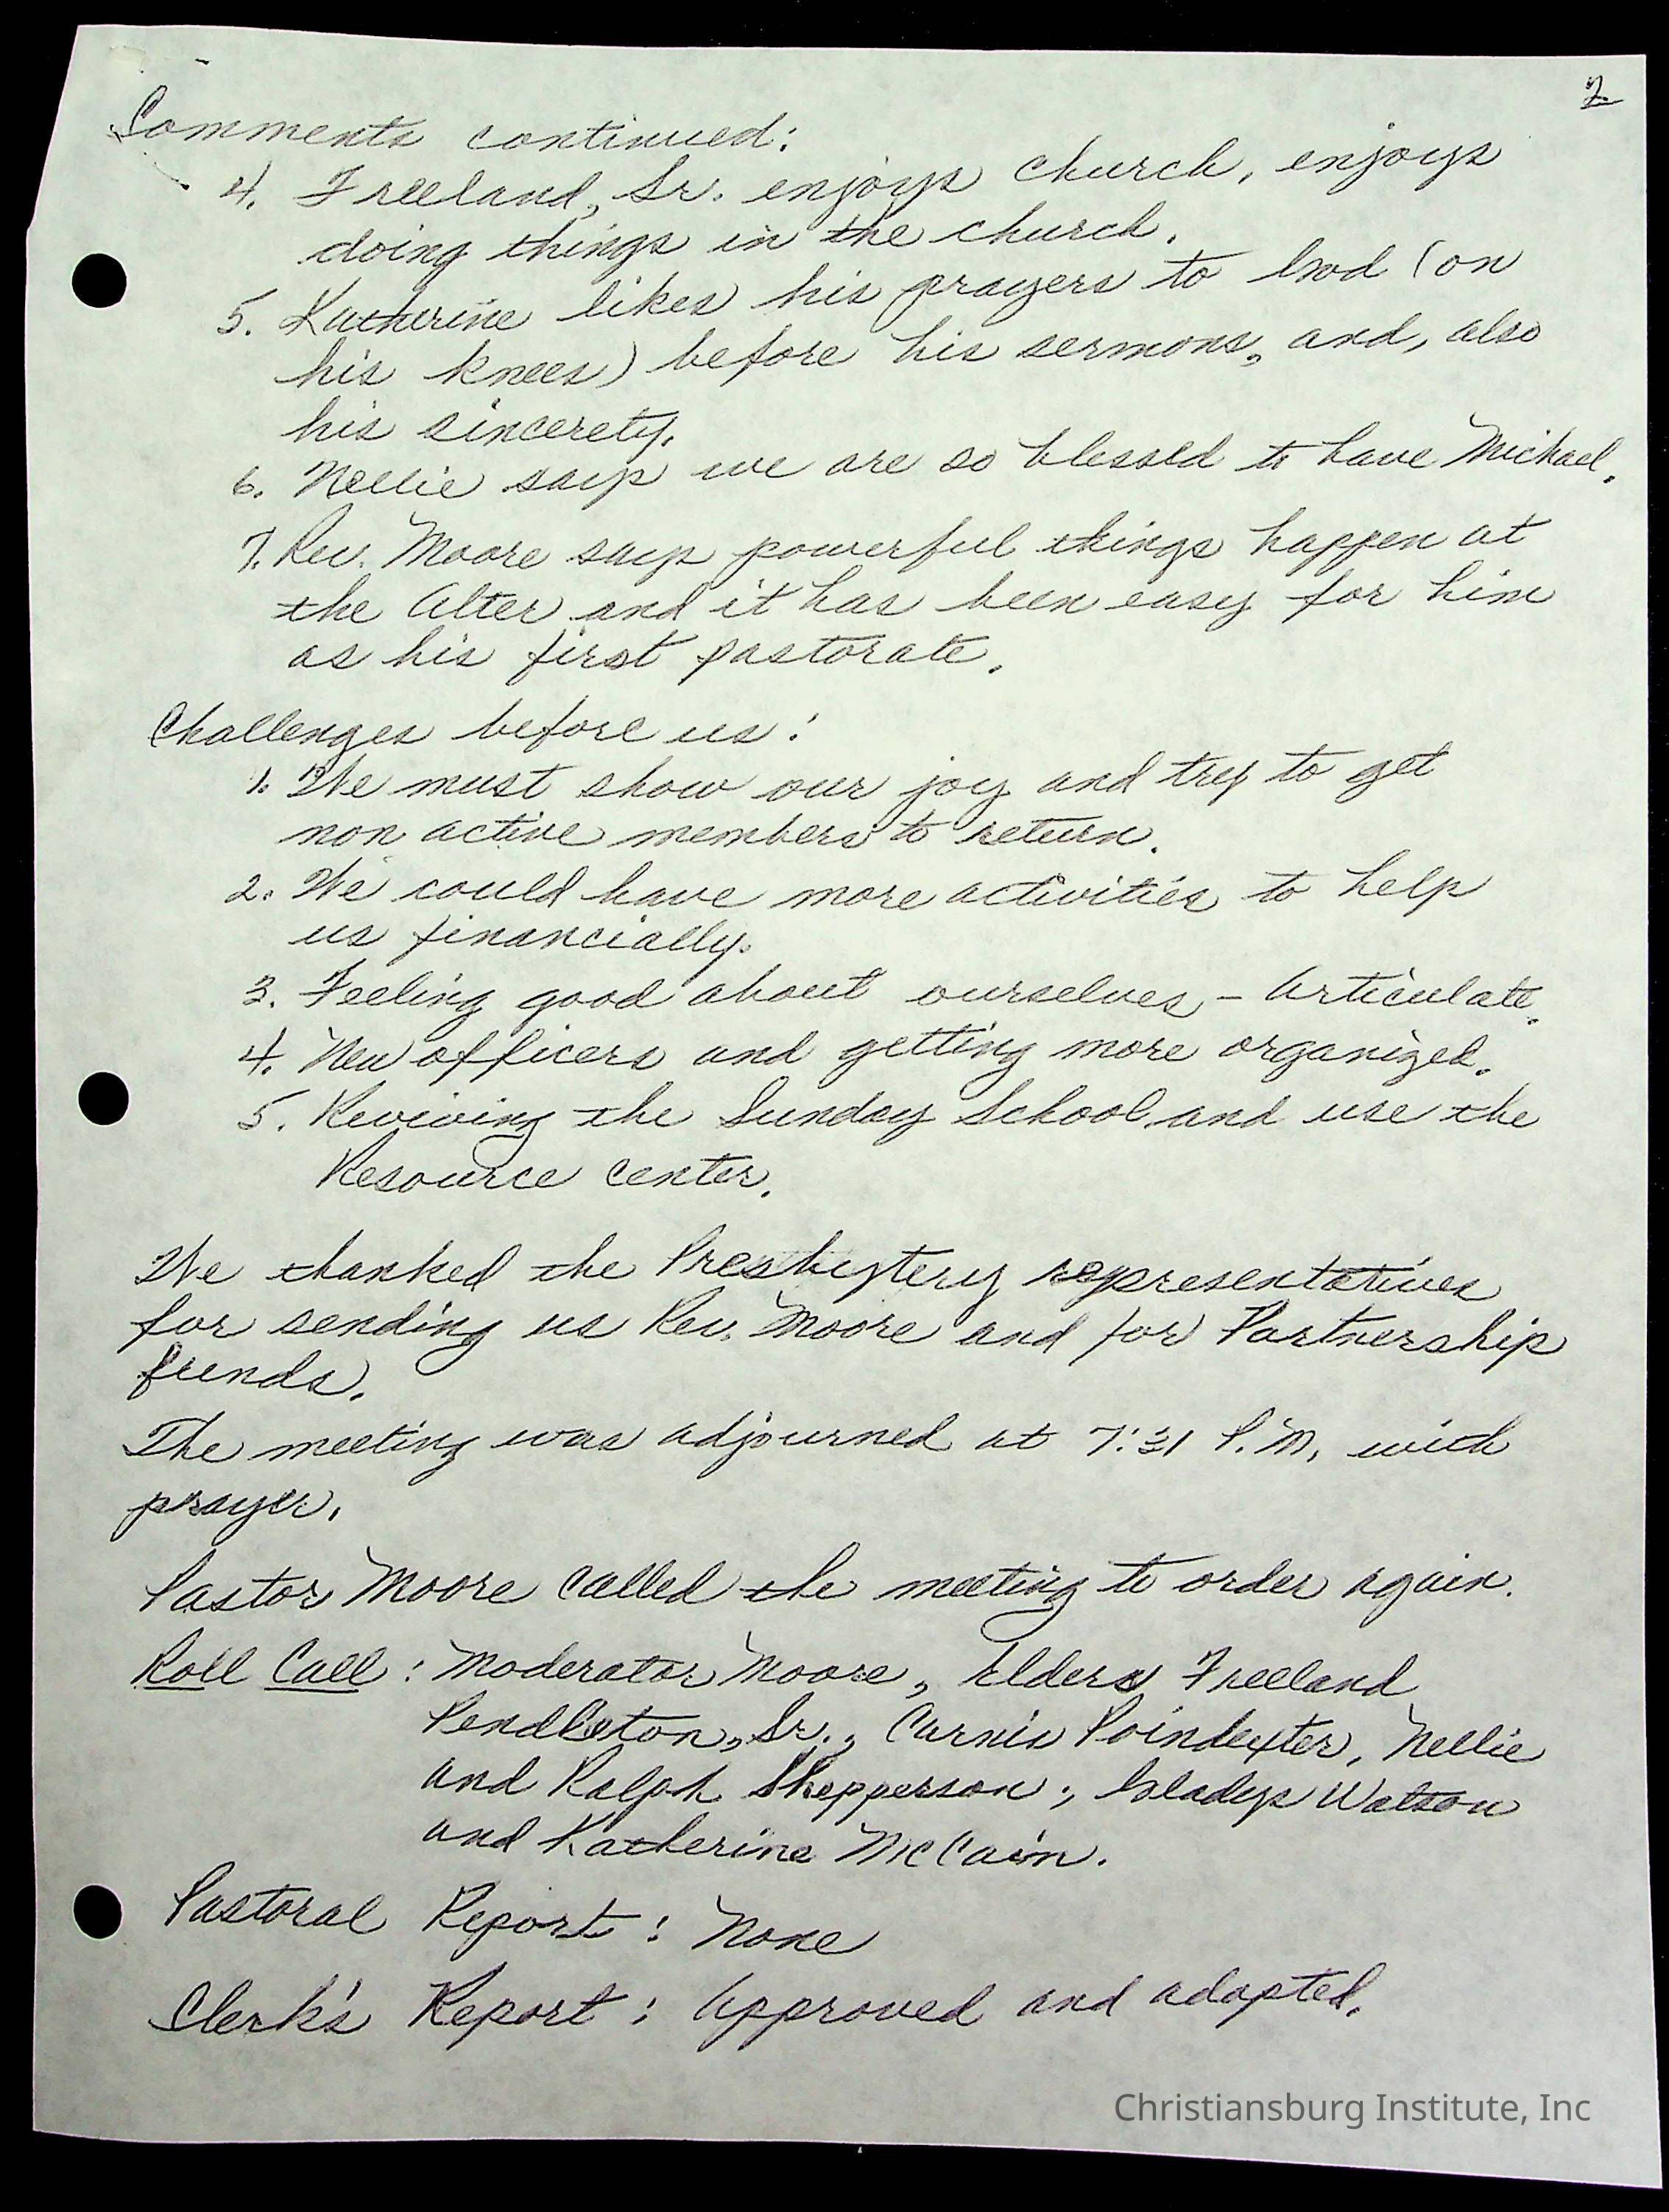 2
Comments continued:
4. Freeland, Sr. enjoys church, enjoys
doing things in the church.
5. Katherine likes his prayers to God (on
his knees) before his sermons, and, also
his sincerety.
6. Nellie says we are so blessed to have Michael.
7. Rev. Moore says powerful things happen at
the Alter and it has been easy for him
as his first pastorate.
Challenges before us:
1. We must show our joy and try to get
non active members to return.
2. We could have more activities to help
us financially.
3. Feeling good about ourselves - Articulate.
4. New officers and getting more organized.
5. Reviving the Sunday School and use the
Resource Center.
We thanked the Presbytery representatives
for sending us Rev. Moore and for Partnership
funds.
The meeting was adjourned at 7:31 P.M, with
prayer.
Pastor Moore called the meeting to order again.
Roll Call: Moderator Moore, Elders Freeland
Pendleton, Sr., Curnis Poindexter, Nellie
and Ralph Shepperson; Gladys Watson
and Katherine McCain.
Pastoral Report: None
Clerk's Report: Approved and adopted.
Christiansburg Institute, Inc